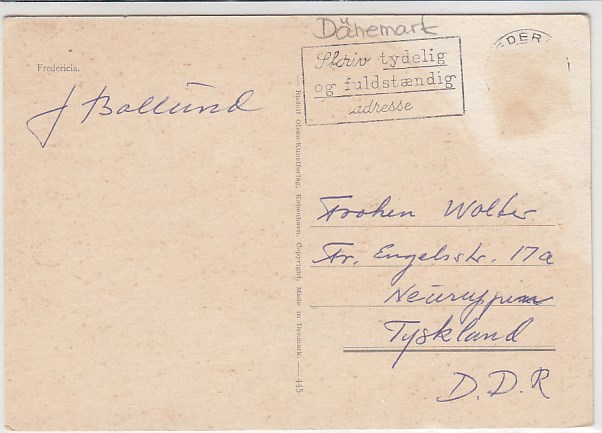 Dänemark
Skriv tydelig
og fuldstændig
adresse
DER
Fredericia.
J Bollund
Rudolf Olsen-Kunstforlag, København. Copyright. Made in Denmark. — 445
Frohen Wolter
Fr. Engelsstr. 17a
Neuruppin
Tyskland
D.D.R